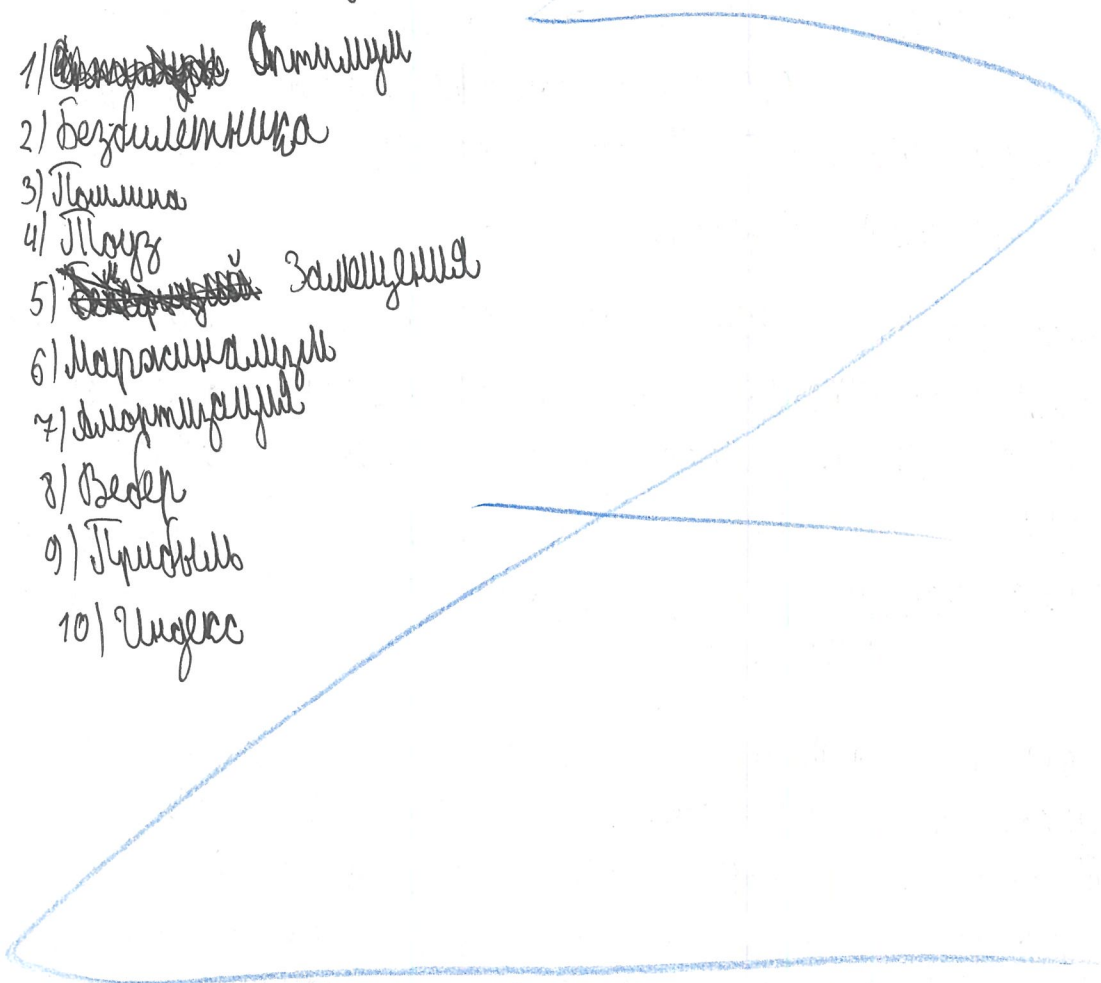 1) Оптимум
2) Безбилетника
3) Пошлина
4) Тоуз
5) Замещения
6) Маржинализм
7) Амортизация
8) Вебер
9) Прибыль
10) Индекс